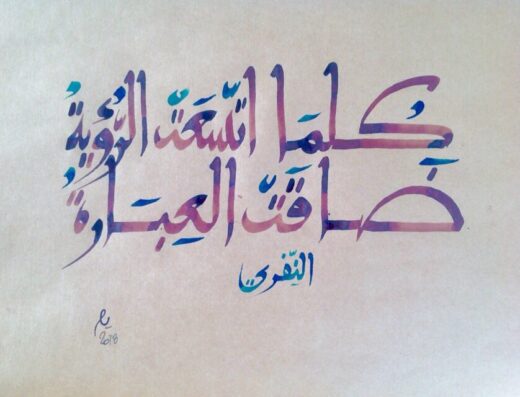 كلما اتّسعتْ الرُّؤيةُ
ضاقتْ العِبَارةُ
النِّفّري
2018